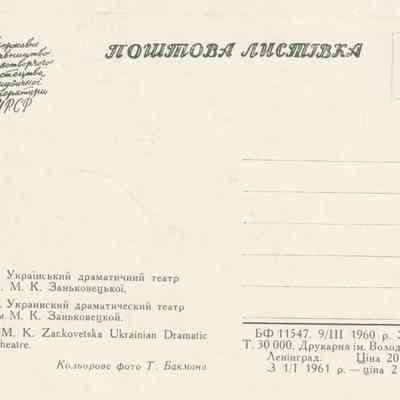 ПОШТОВА ЛИСТІВКА
УРСР
Український драматичний театр
. М. К. Заньковецької.
. Украинский драматический театр
М. К. Заньковецкой.
M. K. Zankovetska Ukrainian Dramatic
heatre.
Кольорове фото Т. Бакмана
БФ 11547. 9/III 1960 р. З
Т. 30 000. Друкарня ім. Волод
Ленінград. Ціна 20
З 1/I 1961 — ціна 2